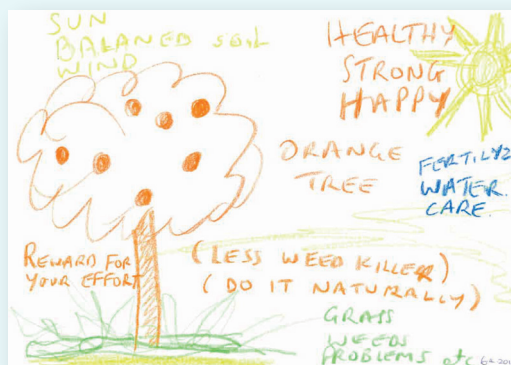 SUN
BALANED SOIL
WIND
HEALTHY
STRONG
HAPPY
ORANGE
TREE
FERTILYZ
WATER.
CARE.
REWARD FOR
YOUR EFFORT
(LESS WEED KILLER)
(DO IT NATURALLY)
GRASS
WEEDS
PROBLEMS etc